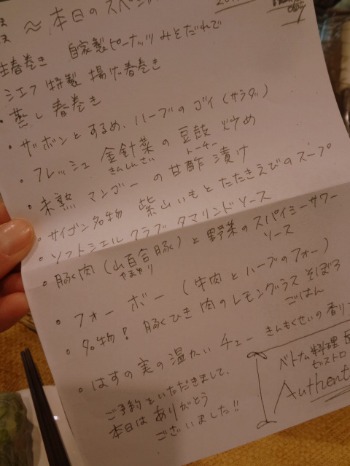 ～本日のスペシ
生春巻き 自家製ピーナッツみそだれで
シェフ特製 揚げ春巻き
・蒸し春巻き
・ザボンとするめ、ハーブのゴイ（サラダ）
・フレッシュ金針菜の豆豉炒め
きんしんさい トーチー
・未熟マンゴーの甘酢漬け
・サイゴン名物 紫山いもとたたきえびのスープ
・ソフトシェルクラブ タマリンドソース
・豚肉（山百合豚）と野菜のスパイシーサワー
やまゆり ソース
・フォーボー（牛肉とハーブのフォー）
・名物！豚ひき肉のレモングラスそぼろ
ごはん
・はすの実の温かいチェー きんもくせいの香り
ご予約をいただきまして、
本日はありがとう
ございました!!
ベトナム料理
ビストロ
Authent